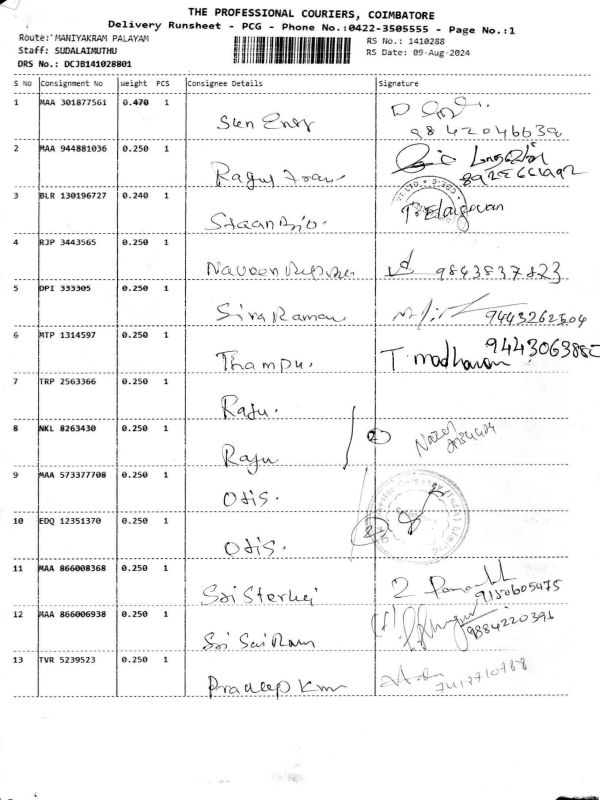 THE PROFESSIONAL COURIERS, COIMBATORE
Delivery Runsheet - PCG - Phone No.:0422-3505555 - Page No.:1
Route: MANIYAKRAM PALAYAM
RS No.: 1410288
Staff: SUDALAIMUTHU
RS Date: 09-Aug-2024
DRS No.: DCJB141028801
S No Consignment No Weight PCS Consignee Details Signature
1 MAA 301877561 0.470 1
9842046639
2 MAA 944881036 0.250 1
3 BLR 130196727 0.240 1 T. Elangovan
4 RJP 3443565 0.250 1 Naveen 9843837823
5 DPI 333305 0.250 1 Siva Raman 9443262504
6 MTP 1314597 0.250 1 Thampu. T. madhavan
7 TRP 2563366 0.250 1 Raju.
8 NKL 8263430 0.250 1 Raju 2
9 MAA 573377708 0.250 1 Otis.
10 EDQ 12351370 0.250 1 Otis. 2
11 MAA 866008368 0.250 1 Sri
9150605475
12 MAA 866006938 0.250 1 Sri Sai Ram 9884220396
13 TVR 5239523 0.250 1 Pradeep Kmr